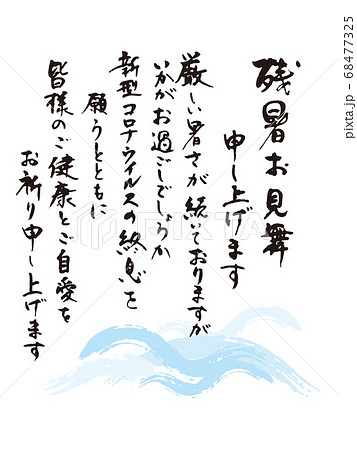 残暑お見舞
申し上げます
厳しい暑さが続いておりますが
いかがお過ごしでしょうか
新型コロナウイルスの終息を
願うとともに
皆様のご健康とご自愛を
お祈り申し上げます
PIXTA
pixta.jp - 68477325